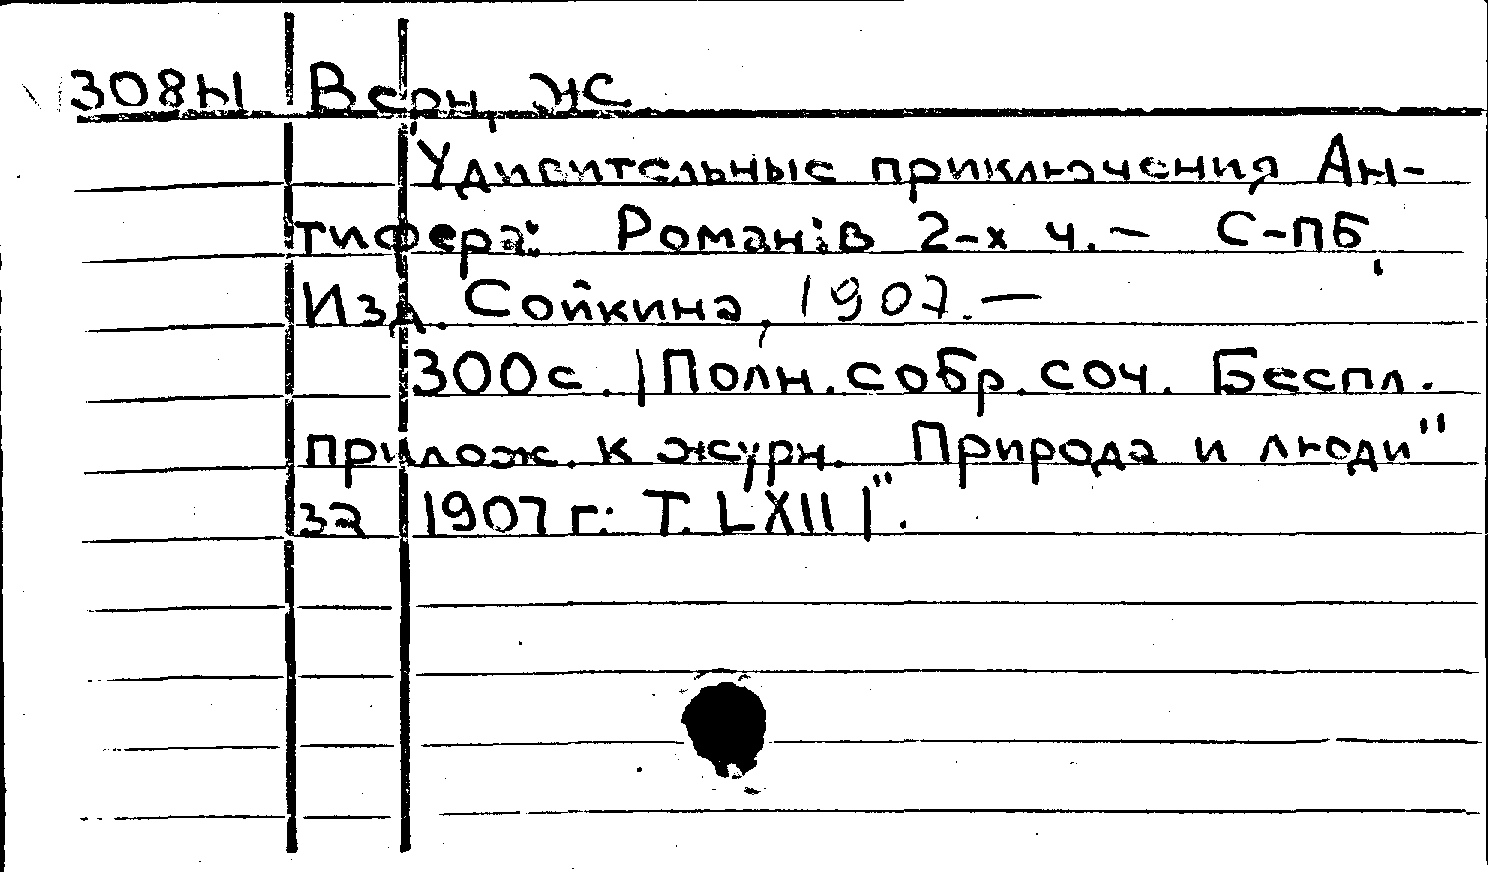 308Ы Верн, Ж
Удивительные приключения Ан-
тифера: Роман: В 2-х ч. — С-ПБ,
Изд. Сойкина, 1907. —
300с. | Полн. собр. соч. Беспл.
прилож. к журн. Природа и люди"
за 1907 г: Т. LXIII|".